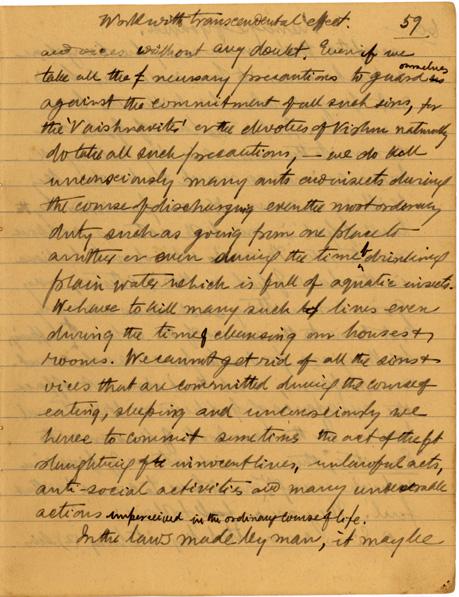 Work with transcendental effect. 59
and vices without any doubt. Even if we
take all the necessary precautions to guard ourselves
against the commitment of all such sins, for
the 'Vaishnavite' or the devotees of Vishnu naturally
do take all such precautions, — we do kill
unconsciously many ants and insects during
the course of discharging even the most ordinary
duty such as going from one place to
another or even during the time of drinking
plain water which is full of aquatic insects.
We have to kill many such lives even
during the time of cleansing our houses &
rooms. We cannot get rid of all the sins &
vices that are committed during the course of
eating, sleeping and unconsciously we
have to commit sometimes the act of theft
slaughtering of innocent lives, unlawful acts,
anti-social activities and many undesirable
actions imperceived in the ordinary course of life.
In the law made by man, it may be